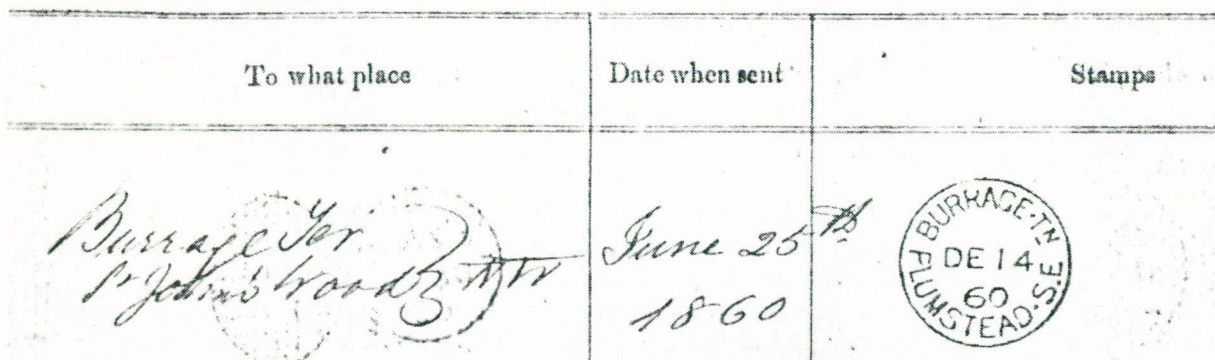 To what place
Date when sent
Stamps
Burrage Ter
St John's Wood
June 25th
1860
BURRAGE-TN
PLUMSTEAD.S.E
DE 14
60